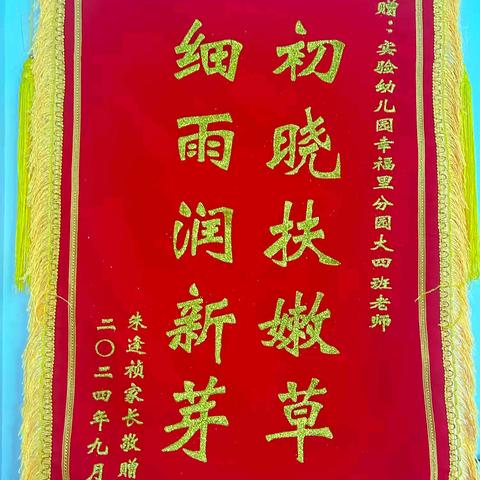 赠：实验幼儿园幸福里分园大四班老师
初晓扶嫩草
细雨润新芽
朱逢祯家长敬赠
二〇二四年九月